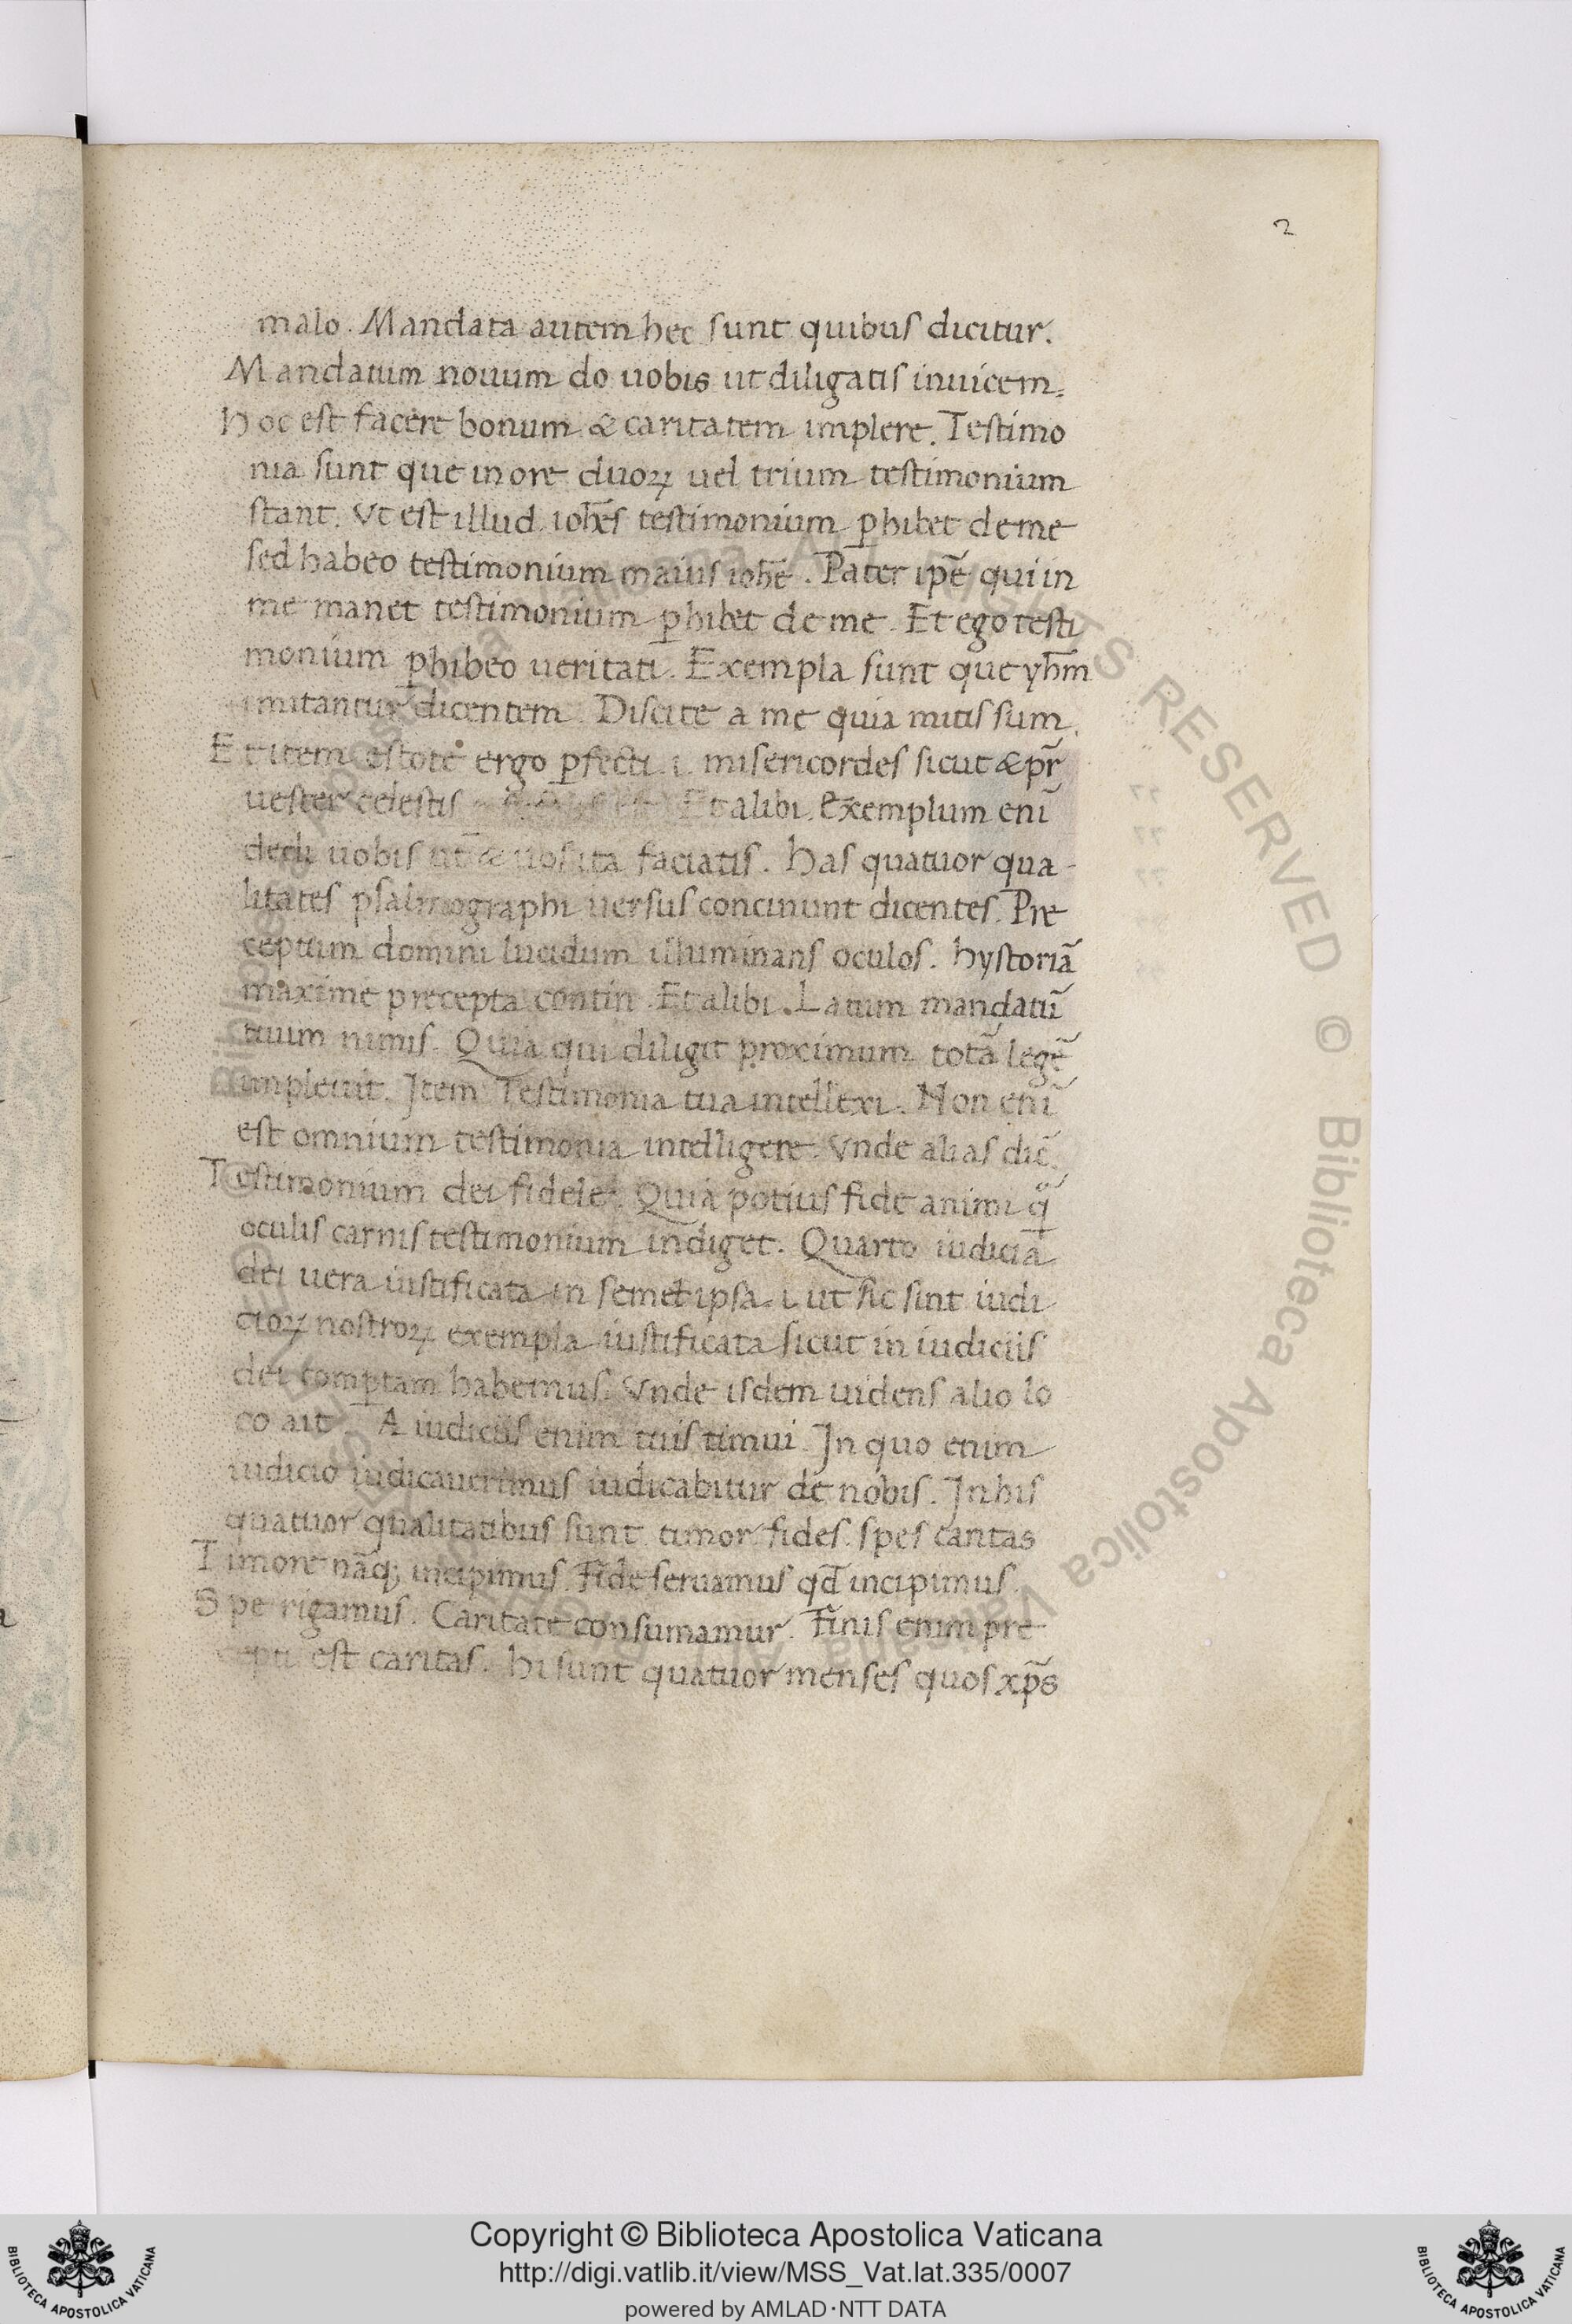 2
malo. Mandata autem hec sunt quibus dicitur.
Mandatum nouum do uobis ut diligatis inuicem.
Hoc est facere bonum & caritatem implere. Testimo
nia sunt que in ore duoꝝ uel trium testimonium
stant. Vt est illud. ioh̄es testimonium ꝑhibet de me
sed habeo testimonium maius ioh̄e. Pater ip̄e qui in
me manet testimonium ꝑhibet de me. Et ego testi
monium ꝑhibeo ueritati. Exempla sunt que yh̄m
imitantur dicentem. Discite a me quia mitis sum.
Et item estote ergo ꝑfecti .i. misericordes sicut & pr̄
uester celestis Et alibi. Exemplum eni̅
dedi uobis ut & uos ita faciatis. Has quatuor qua-
litates psalmographi uersus concinunt dicentes. Pre
ceptum domini lucidum illuminans oculos. hystoria̅
maxime precepta contin. Et alibi. Latum mandatu̅
tuum nimis. Quia qui diligit proximum tota̅ lege̅
impleuit. Item Testimonia tua intellexi. Non eni̅
est omnium testimonia intelligere. Vnde alias dic̅.
Testimonium dei fidele. Quia potius fide animi q̅
oculis carnis testimonium indiget. Quarto iudicia
dei uera iustificata in semet ipsa .i. ut sic sint iudi
cioꝝ nostroꝝ exempla iustificata sicut in iudiciis
dei comꝑtam habemus. Vnde isdem uidens alio lo
co ait. A iudiciis enim tuis timui. In quo enim
iudicio iudicauerimus iudicabitur de nobis. In his
quatuor qualitatibus sunt timor. fides. spes caritas
Timore na̅q; incipimus. Fide seruamus qd̅ incipimus.
Spe rigamus. Caritate consumamur. Finis enim pre
cepti est caritas. Hi sunt quatuor menses quos xp̅s
© Biblioteca Apostolica Vaticana
Copyright © Biblioteca Apostolica Vaticana
http://digi.vatlib.it/view/MSS_Vat.lat.335/0007
powered by AMLAD·NTT DATA
BIBLIOTECA APOSTOLICA VATICANA
BIBLIOTECA APOSTOLICA VATICANA